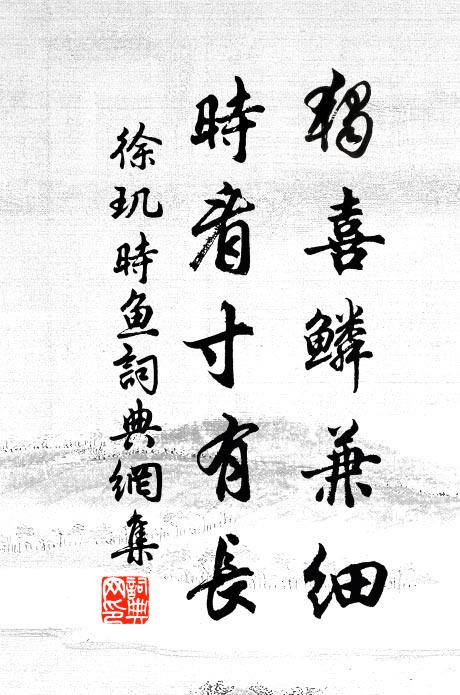 獨喜鱗兼細
時看寸有長
徐璣時魚詞典網集
詞典網印